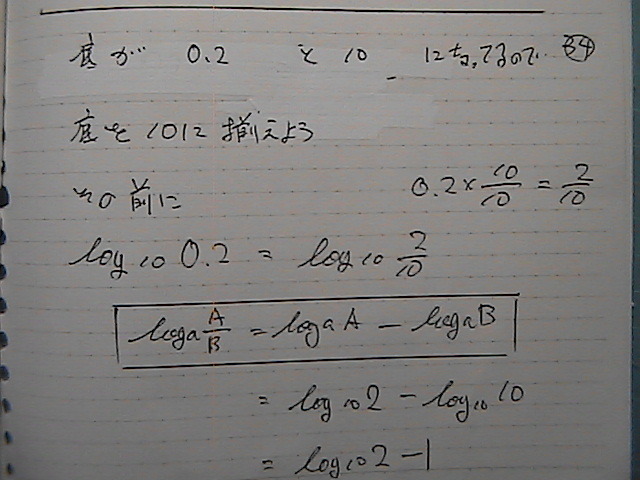 底が 0.2 と 10 になってるので… 34
底を10に揃えよう
その前に 0.2×10/10 = 2/10
log10 0.2 = log10 2/10
loga A/B = loga A − loga B
= log10 2 − log10 10
= log10 2 − 1